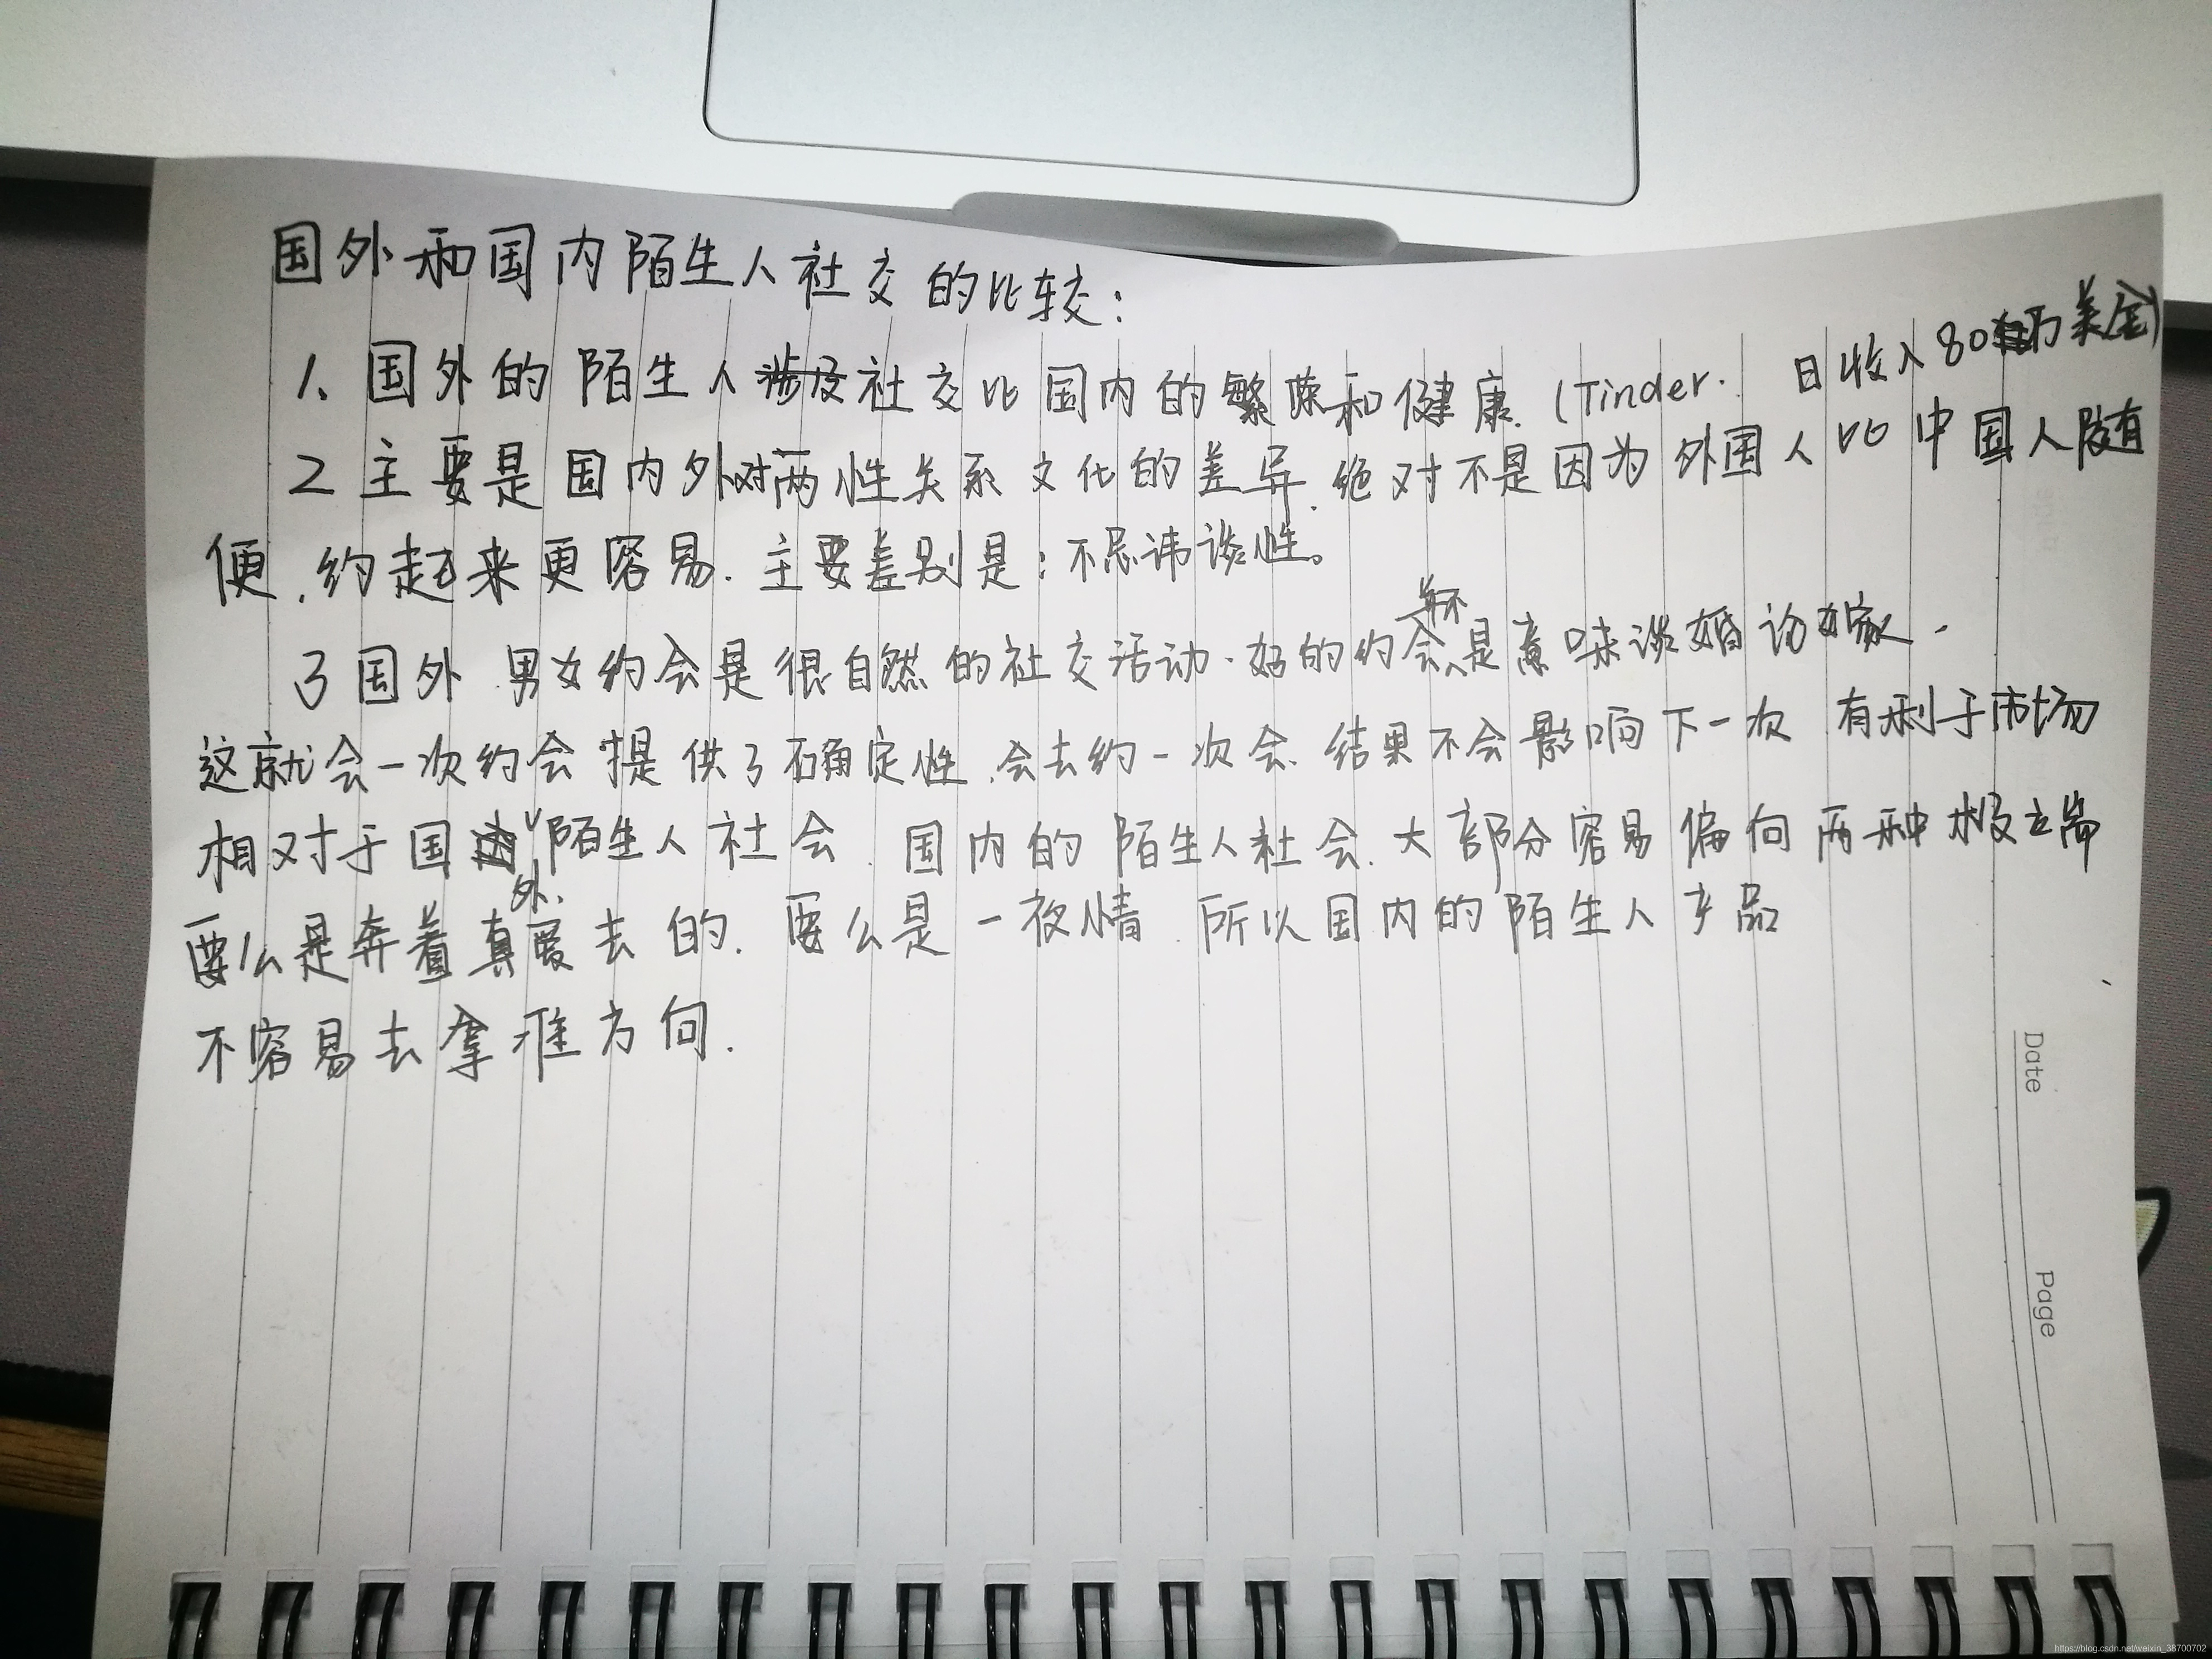 国外和国内陌生人社交的比较：
1. 国外的陌生人社交比国内的繁荣和健康.（Tinder. 日收入80万美金）
2 主要是国内外对两性关系文化的差异.绝对不是因为外国人比中国人随
便.约起来更容易.主要差别是：不忌讳谈性。
3 国外 男女约会是很自然的社交活动.好的约会并不是意味谈婚论嫁.
这就会一次约会提供了确定性.会去约一次会.结果不会影响下一次 有利于市场
相对于国外陌生人社会.国内的陌生人社会.大部分容易偏向两种极端
要么是奔着真爱去的.要么是一夜情.所以国内的陌生人产品
不容易去拿准方向.
Date
Page
https://blog.csdn.net/weixin_38700702